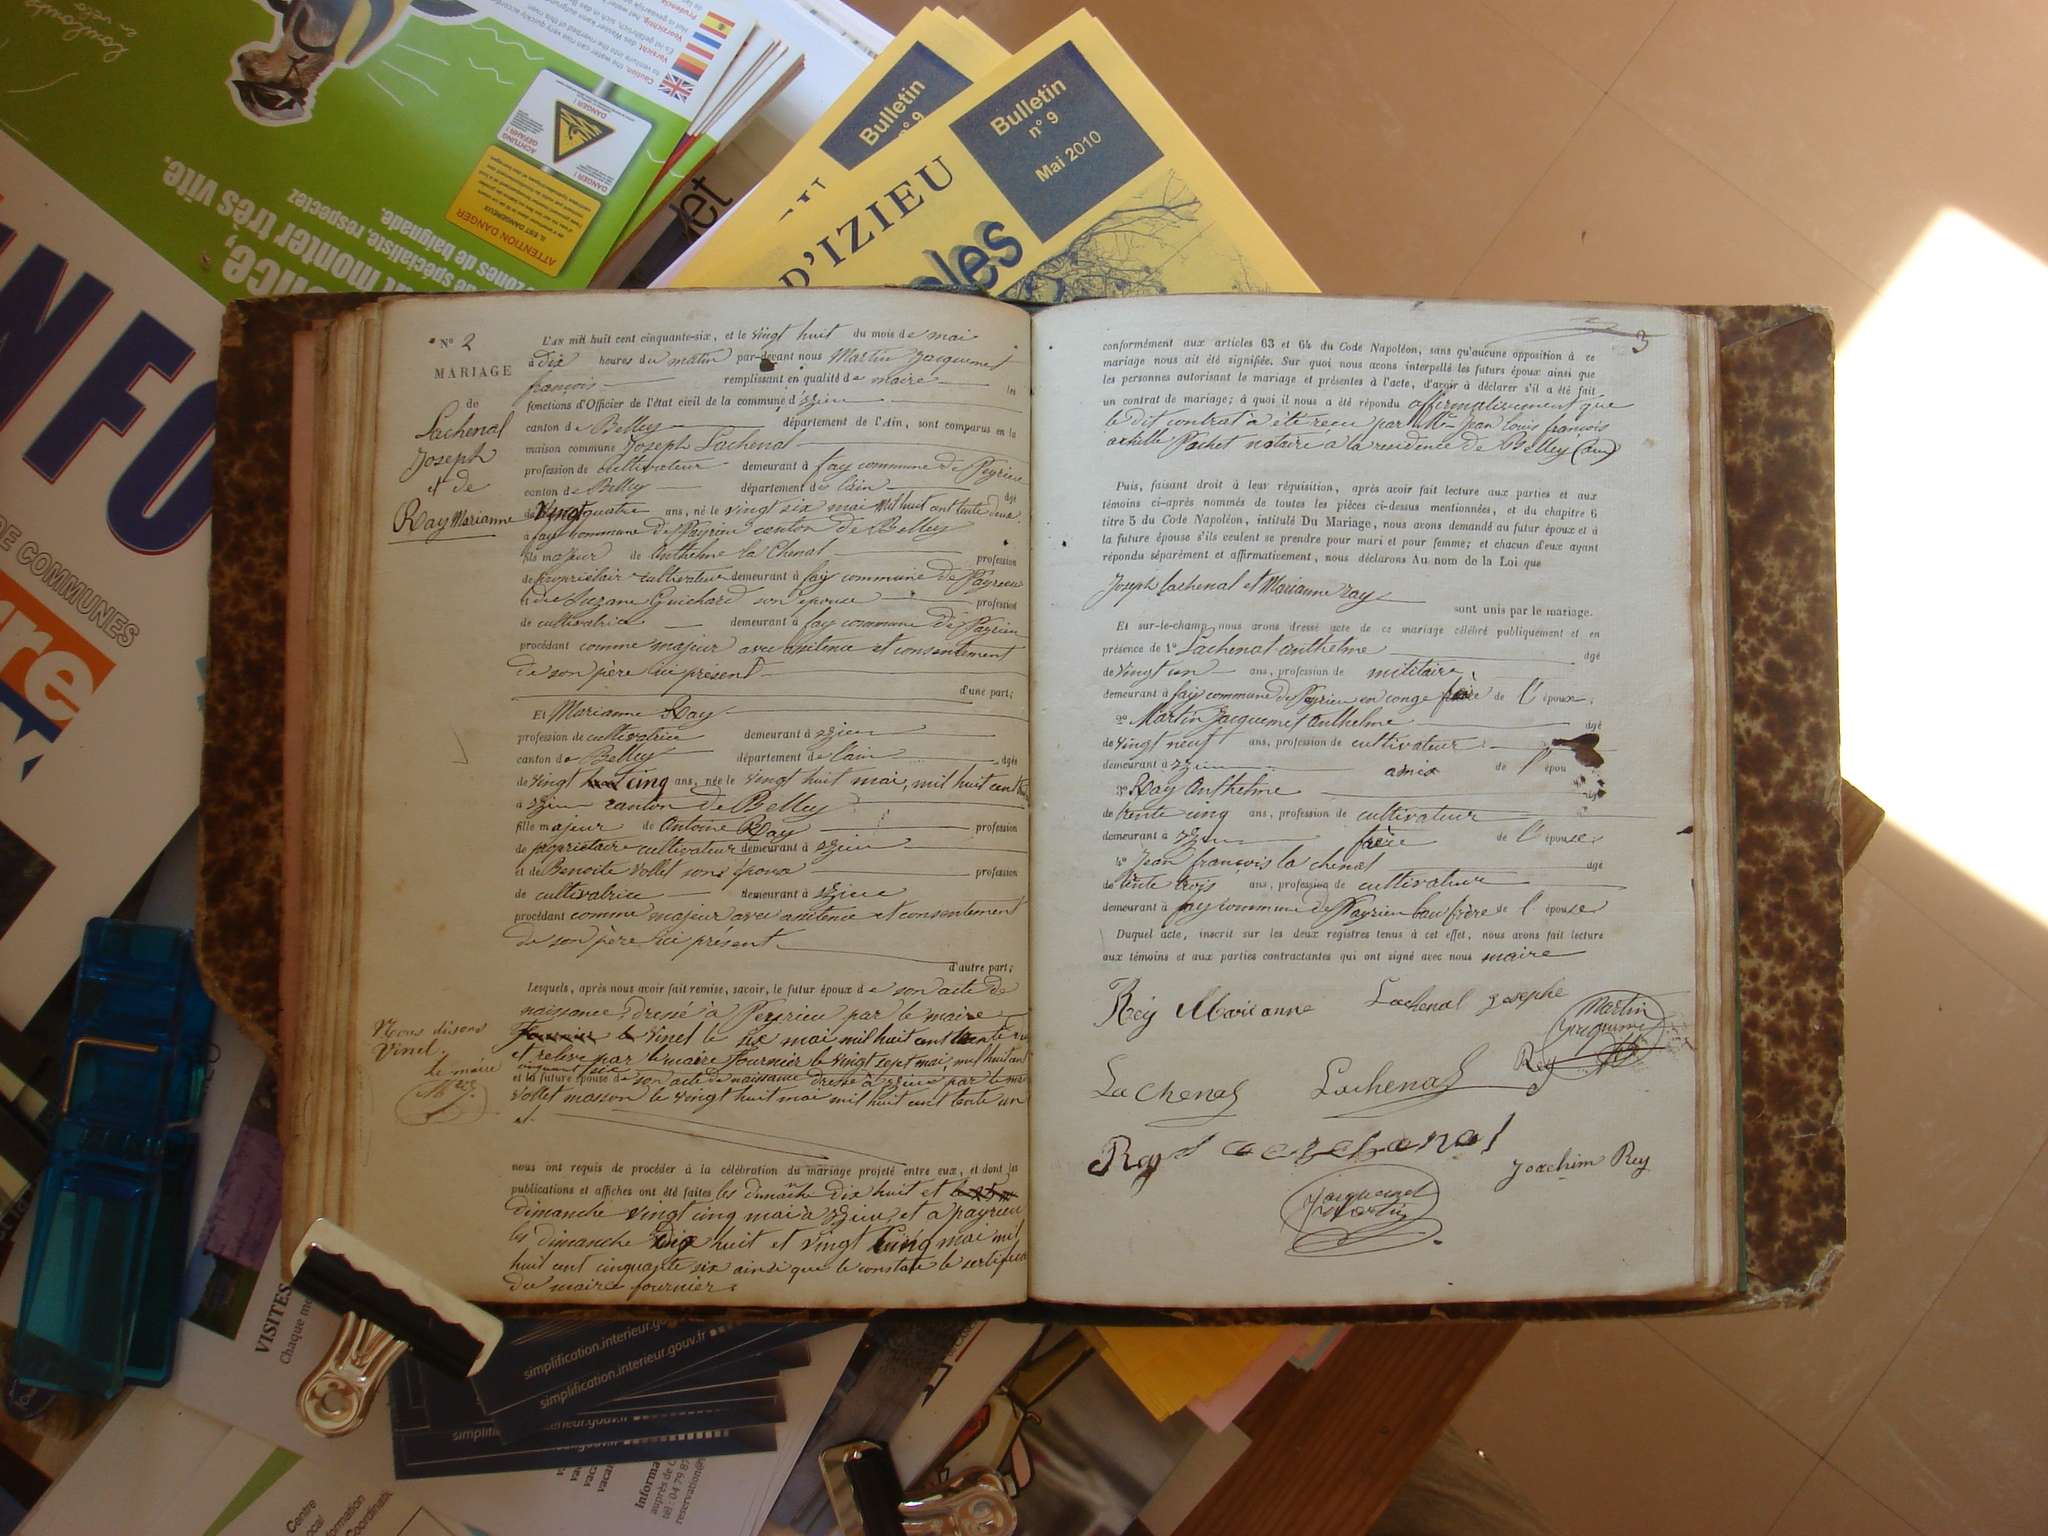 Bulletin
n° 9
Bulletin
n° 9
Mai 2010
D'IZIEU
INFO
DE COMMUNES
très vite.
monter
spécialiste, respectez
zones de baignade.
ATTENTION DANGER
DANGER !
N° 2
MARIAGE
de
Lachenal
Joseph
et de
Ray Marianne
L'AN mil huit cent cinquante-six, et le vingt huit du mois de mai
à dix heures du matin par-devant nous Martin Jacquemet
françois remplissant en qualité de maire les
fonctions d'Officier de l'état civil de la commune d'izieu
canton de Belley département de l'Ain, sont comparus en la
maison commune Joseph Lachenal
profession de cultivateur demeurant à fay commune de Peyrieu
canton de Belley département de l'ain âgé
de vingt quatre ans, né le vingt six mai mil huit cent trente deux
à fay commune de Payrieu canton de Belley
fils majeur de Anthelme la Chenal profession
de propriétair cultivateur demeurant à fay commune de Payrieu
et de Suzane Guichard son épouse profession
de cultivatrice demeurant à fay commune de Payrieu
procédant comme majeur avec asitence et consentement
de son père ici présent
d'une part;
Et Marianne Ray
profession de cultivatrice demeurant à izieu
canton de Belley département de l'ain âgée
de vingt cinq ans, née le vingt huit mai, mil huit cent
à izieu canton de Belley
fille majeur de Antoine Ray profession
de propriétaire cultivateur demeurant à izieu
et de Benoite Vollet son épouse profession
de cultivatrice demeurant à izieu
procédant comme majeur avec asitence et consentement
de son père ici présent
d'autre part;
Lesquels, après nous avoir fait remise, savoir, le futur époux de son acte de
naissance dressé à Peyrieu par le maire
Fournier le Vinel le six mai mil huit cent trente
et relevé par le maire fournier le vingt sept mai, mil huit cent
cinquante six
et la future épouse de son acte de naissance dressé à izieu par le maire
Vollet masson le vingt huit mai mil huit cent trente un
et
Nous disons
Vinel
le maire
nous ont requis de procéder à la célébration du mariage projeté entre eux, et dont les
publications et affiches ont été faites les dimanche dix huit et
dimanche vingt cinq mai à izieu, et a payrieu
les dimanche dix huit et vingt cinq mai mil
huit cent cinquante six ainsi que le constate le sertificat
du maire fournier
3
conformément aux articles 63 et 64 du Code Napoléon, sans qu'aucune opposition à ce
mariage nous ait été signifiée. Sur quoi nous avons interpellé les futurs époux ainsi que
les personnes autorisant le mariage et présentes à l'acte, d'avoir à déclarer s'il a été fait
un contrat de mariage; à quoi il nous a été répondu affirmativement que
le dit contrat à été reçu par Me Jean louis françois
achille Pochet notaire à la résidence de Belley (ain)
Puis, faisant droit à leur réquisition, après avoir fait lecture aux parties et aux
témoins ci-après nommés de toutes les pièces ci-dessus mentionnées, et du chapitre 6
titre 5 du Code Napoléon, intitulé Du Mariage, nous avons demandé au futur époux et à
la future épouse s'ils veulent se prendre pour mari et pour femme; et chacun d'eux ayant
répondu séparément et affirmativement, nous déclarons Au nom de la Loi que
Joseph Lachenal et Marianne ray
sont unis par le mariage.
Et sur-le-champ nous avons dressé acte de ce mariage célébré publiquement et en
présence de 1° Lachenal anthelme âgé
de vingt un ans, profession de militaire
demeurant à fay commune de Payrieu en conge frère de l'époux,
2° Martin Jacquemet anthelme âgé
de vingt neuf ans, profession de cultivateur
demeurant à izieu amis de l'épou
3° Ray Anthelme
de trente cinq ans, profession de cultivateur
demeurant à izieu frère de l'épouse
4° Jean françois la chenal âgé
de trente trois ans, profession de cultivateur
demeurant à fay commune de Payrieu bau frère de l'épouse
Duquel acte, inscrit sur les deux registres tenus à cet effet, nous avons fait lecture
aux témoins et aux parties contractantes qui ont signé avec nous maire
Réy Marianne
Lachenal Josephe
Martin
Jacquemet
Rey
LaChenal
Lachenal
Ray
Joachim Rey
Jacquemet
Martin
VISITES
simplification.interieur.gouv.fr
simplification.interieur.gouv.fr